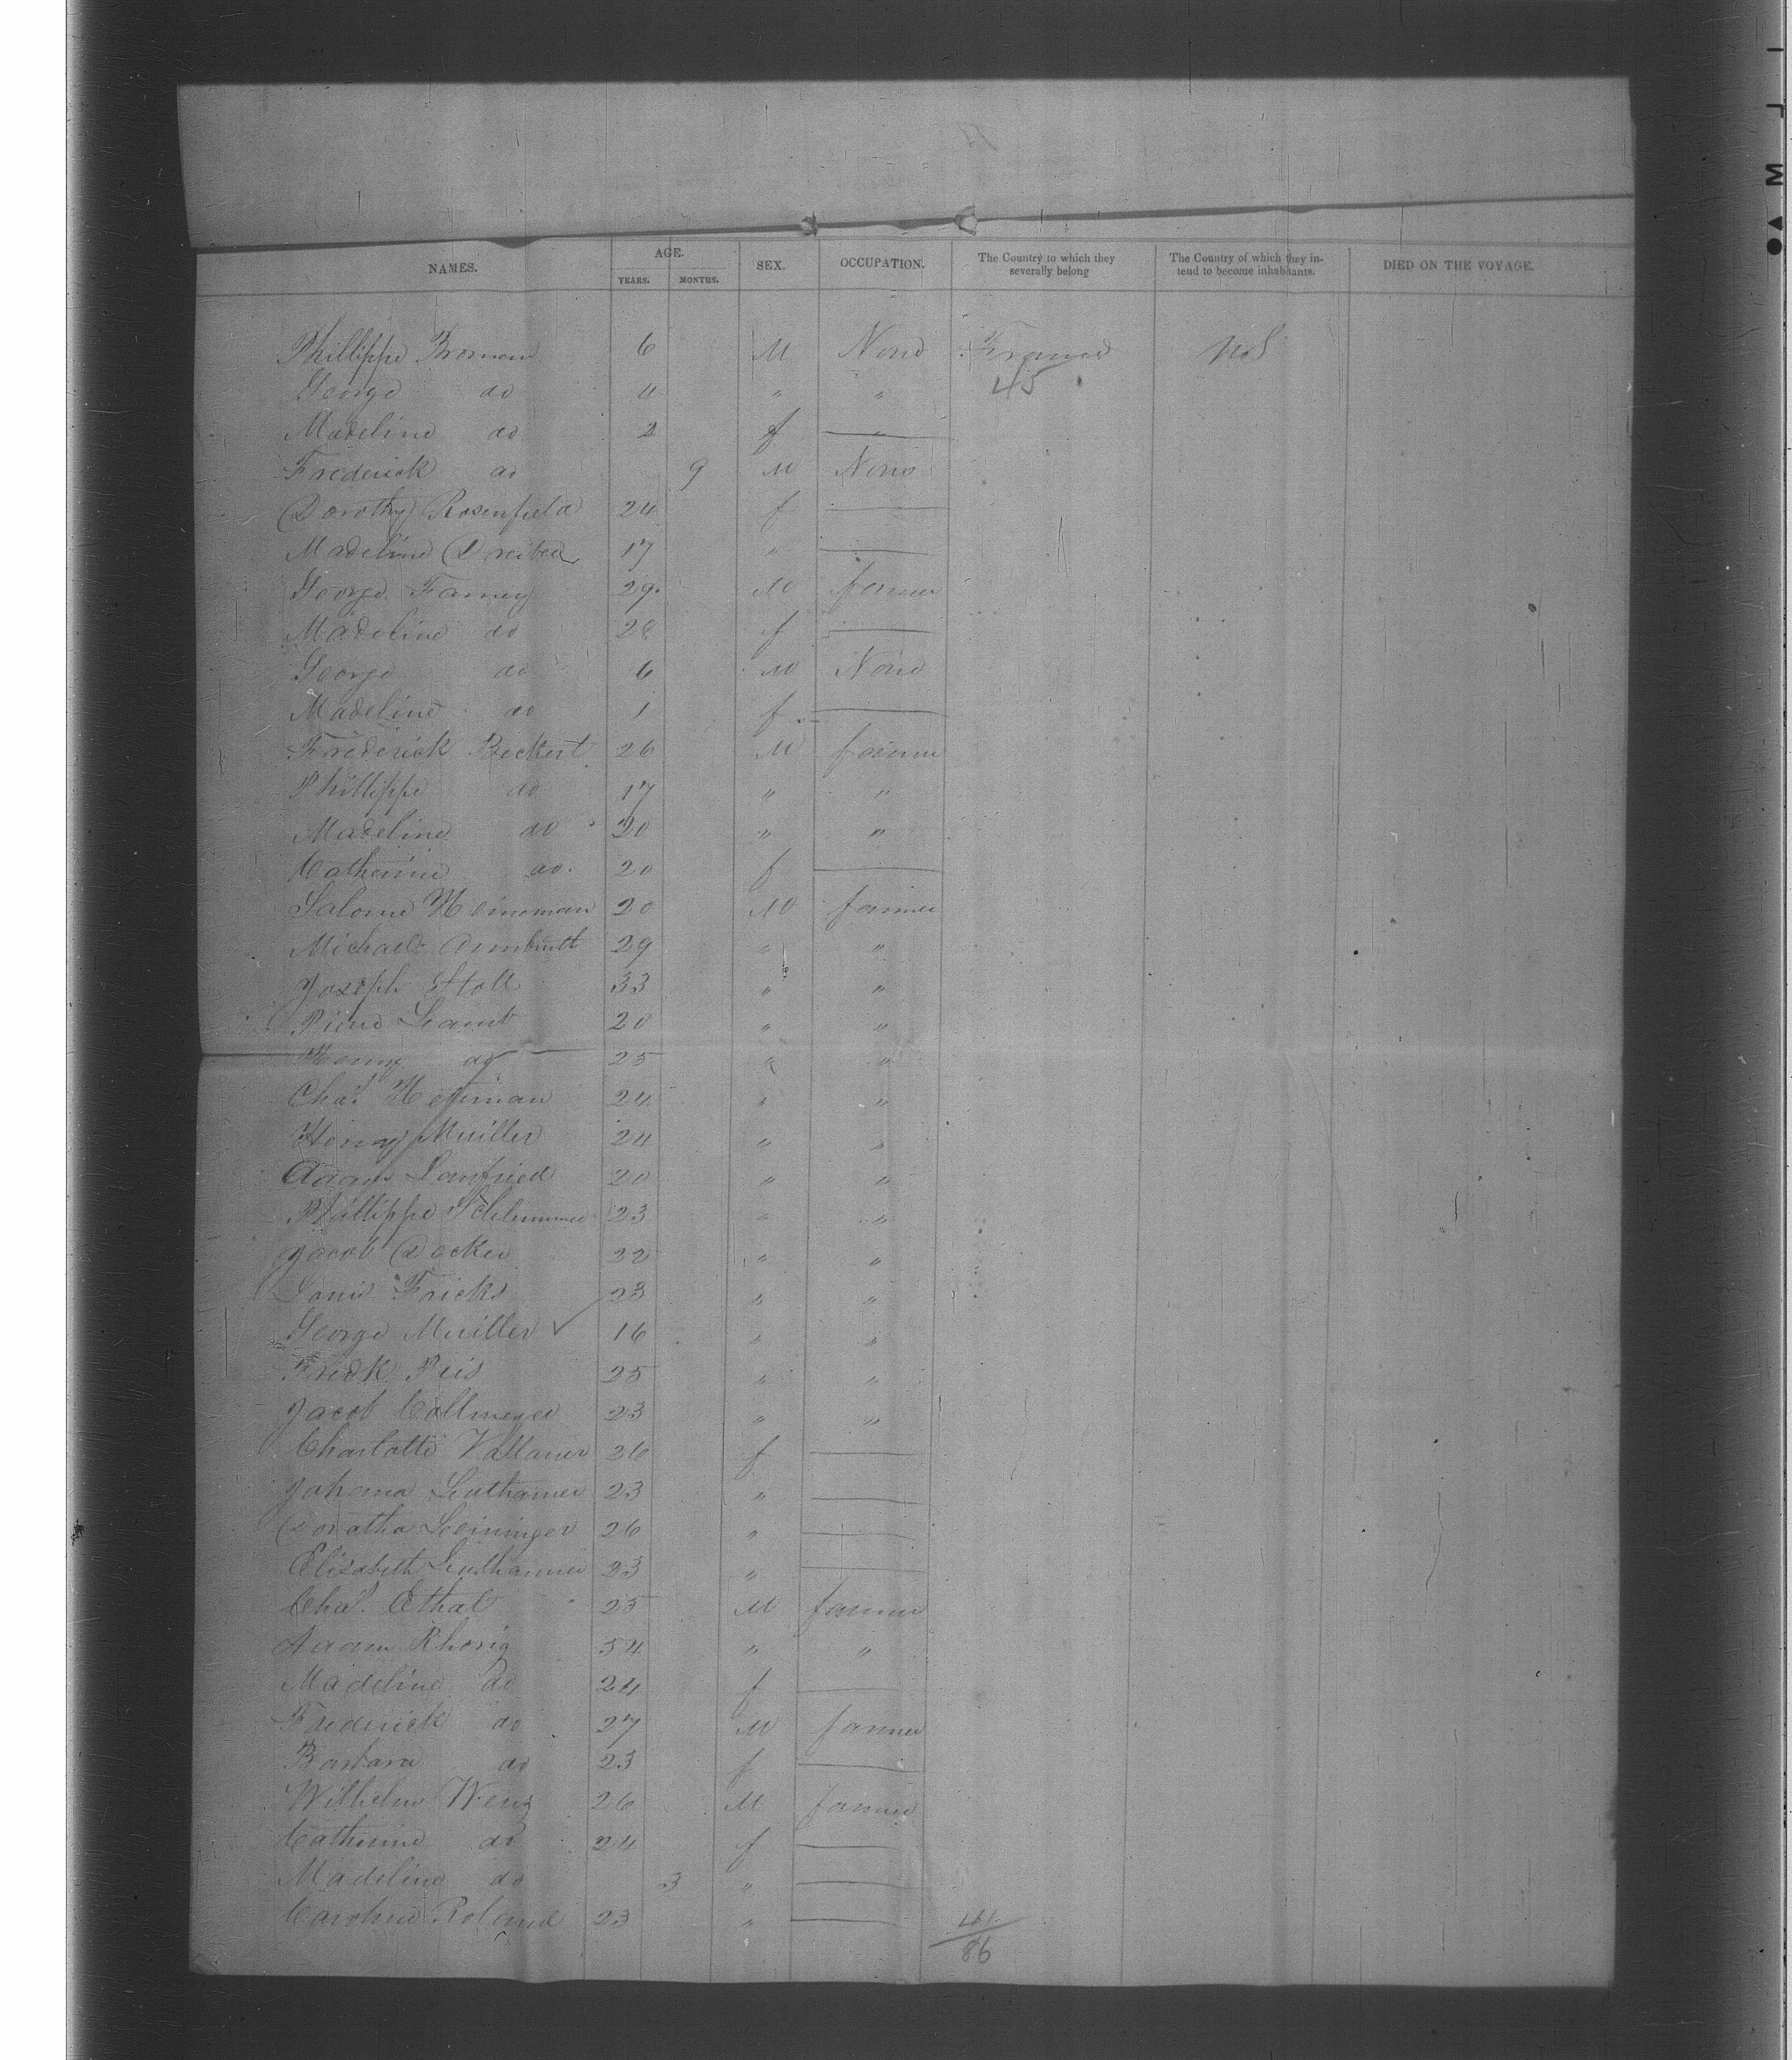 NAMES. AGE. YEARS. MONTHS. SEX. OCCUPATION. The Country to which they severally belong The Country of which they intend to become inhabitants. DIED ON THE VOYAGE.
Phillippe Broman 6 M None France U.S
George do 4 " " 45
Madeline do 2 f "
Frederick do 9 M None
Dorothy Rosenfield 24 f
Madeline 17 "
George Farney 29 M farmer
Madeline do 28 f
George do 6 M None
Madeline do 1 f
Frederick Beckert 26 M farmer
Phillippe do 17 " "
Madeline do 20 " "
Catherine do. 20 f
Salome Heineman 20 M farmer
Michael 29 " "
Joseph Stoll 33 " "
Pierre 20 " "
Henry do 25 " "
Chas. 24 " "
Henry Muiller 24 " "
Adam 20 " "
Phillippe Schlemmer 23 " "
Jacob Decker 22 " "
Louis Fricks 23 " "
George Muiller 16 " "
Fredk Peis 25 " "
Jacob Collmeyer 23 " "
Charlotte 26 f
Johana 23 "
Doratha Leininger 26 "
Elisabeth 23 "
Chas. Ethal 25 M farmer
Adam Rhorig 54 " "
Madeline do 24 f
Frederick do 27 M farmer
Barbara do 23 f
Wilhelm Weng 26 M farmer
Catherine do 24 f
Madeline do 3 "
Caroline Roland 23 " 41
86